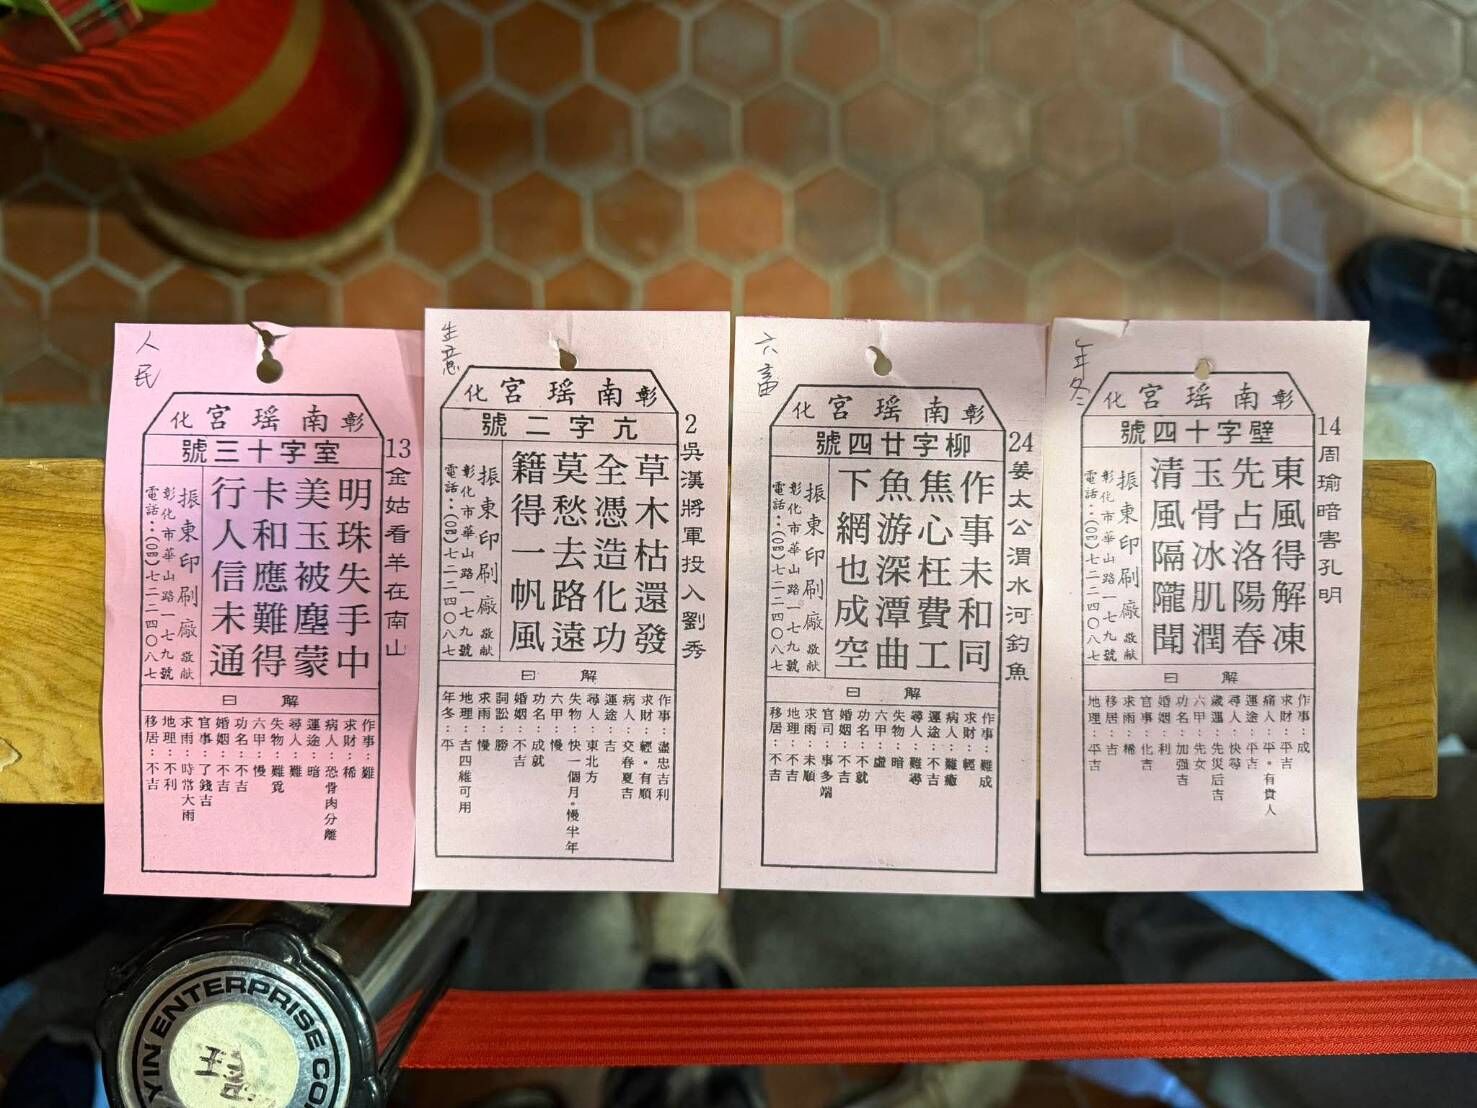 人民
彰化南瑤宮
室字十三號
13金姑看羊在南山
明珠失手中
美玉被塵蒙
卡和應難得
行人信未通
振東印刷廠敬獻
彰化市華山路一七九號
電話：(〇四)七二二四〇八七
解曰
作事：難
求財：稀
病人：恐骨肉分離
運途：暗
尋人：難
失物：難覓
六甲：慢
功名：不吉
婚姻：不吉
官事：了錢吉
求雨：時常大雨
地理：不利
移居：不吉
生意
彰化南瑤宮
亢字二號
2吳漢將軍投入劉秀
草木枯還發
全憑造化功
莫愁去路遠
籍得一帆風
振東印刷廠敬獻
彰化市華山路一七九號
電話：(〇四)七二二四〇八七
解曰
作事：盡忠吉利
求財：輕。有順
病人：交春夏吉
運途：吉
尋人：東北方
失物：快一個月。慢半年
六甲：慢
功名：成就
婚姻：不吉
詞訟：勝
求雨：慢
地理：吉四維可用
年冬：平
六畜
彰化南瑤宮
柳字廿四號
24姜太公渭水河釣魚
作事未和同
焦心枉費工
魚游深潭曲
下網也成空
振東印刷廠敬獻
彰化市華山路一七九號
電話：(〇四)七二二四〇八七
解曰
作事：難成
求財：輕
病人：難癒
運途：不吉
尋人：難尋
失物：暗
六甲：虛
功名：不就
婚姻：不吉
官司：事多端
求雨：未順
地理：不吉
移居：不吉
年冬
彰化南瑤宮
壁字十四號
14周瑜暗害孔明
東風得解凍
先占洛陽春
玉骨冰肌潤
清風隔隴聞
振東印刷廠敬獻
彰化市華山路一七九號
電話：(〇四)七二二四〇八七
解曰
作事：成
求財：平吉
病人：平。有貴人
運途：平吉
尋人：快尋
歲運：先災后吉
六甲：先女
功名：加強吉
婚姻：利
官事：化吉
求雨：稀
移居：吉
地理：平吉
YIN ENTERPRISE CO